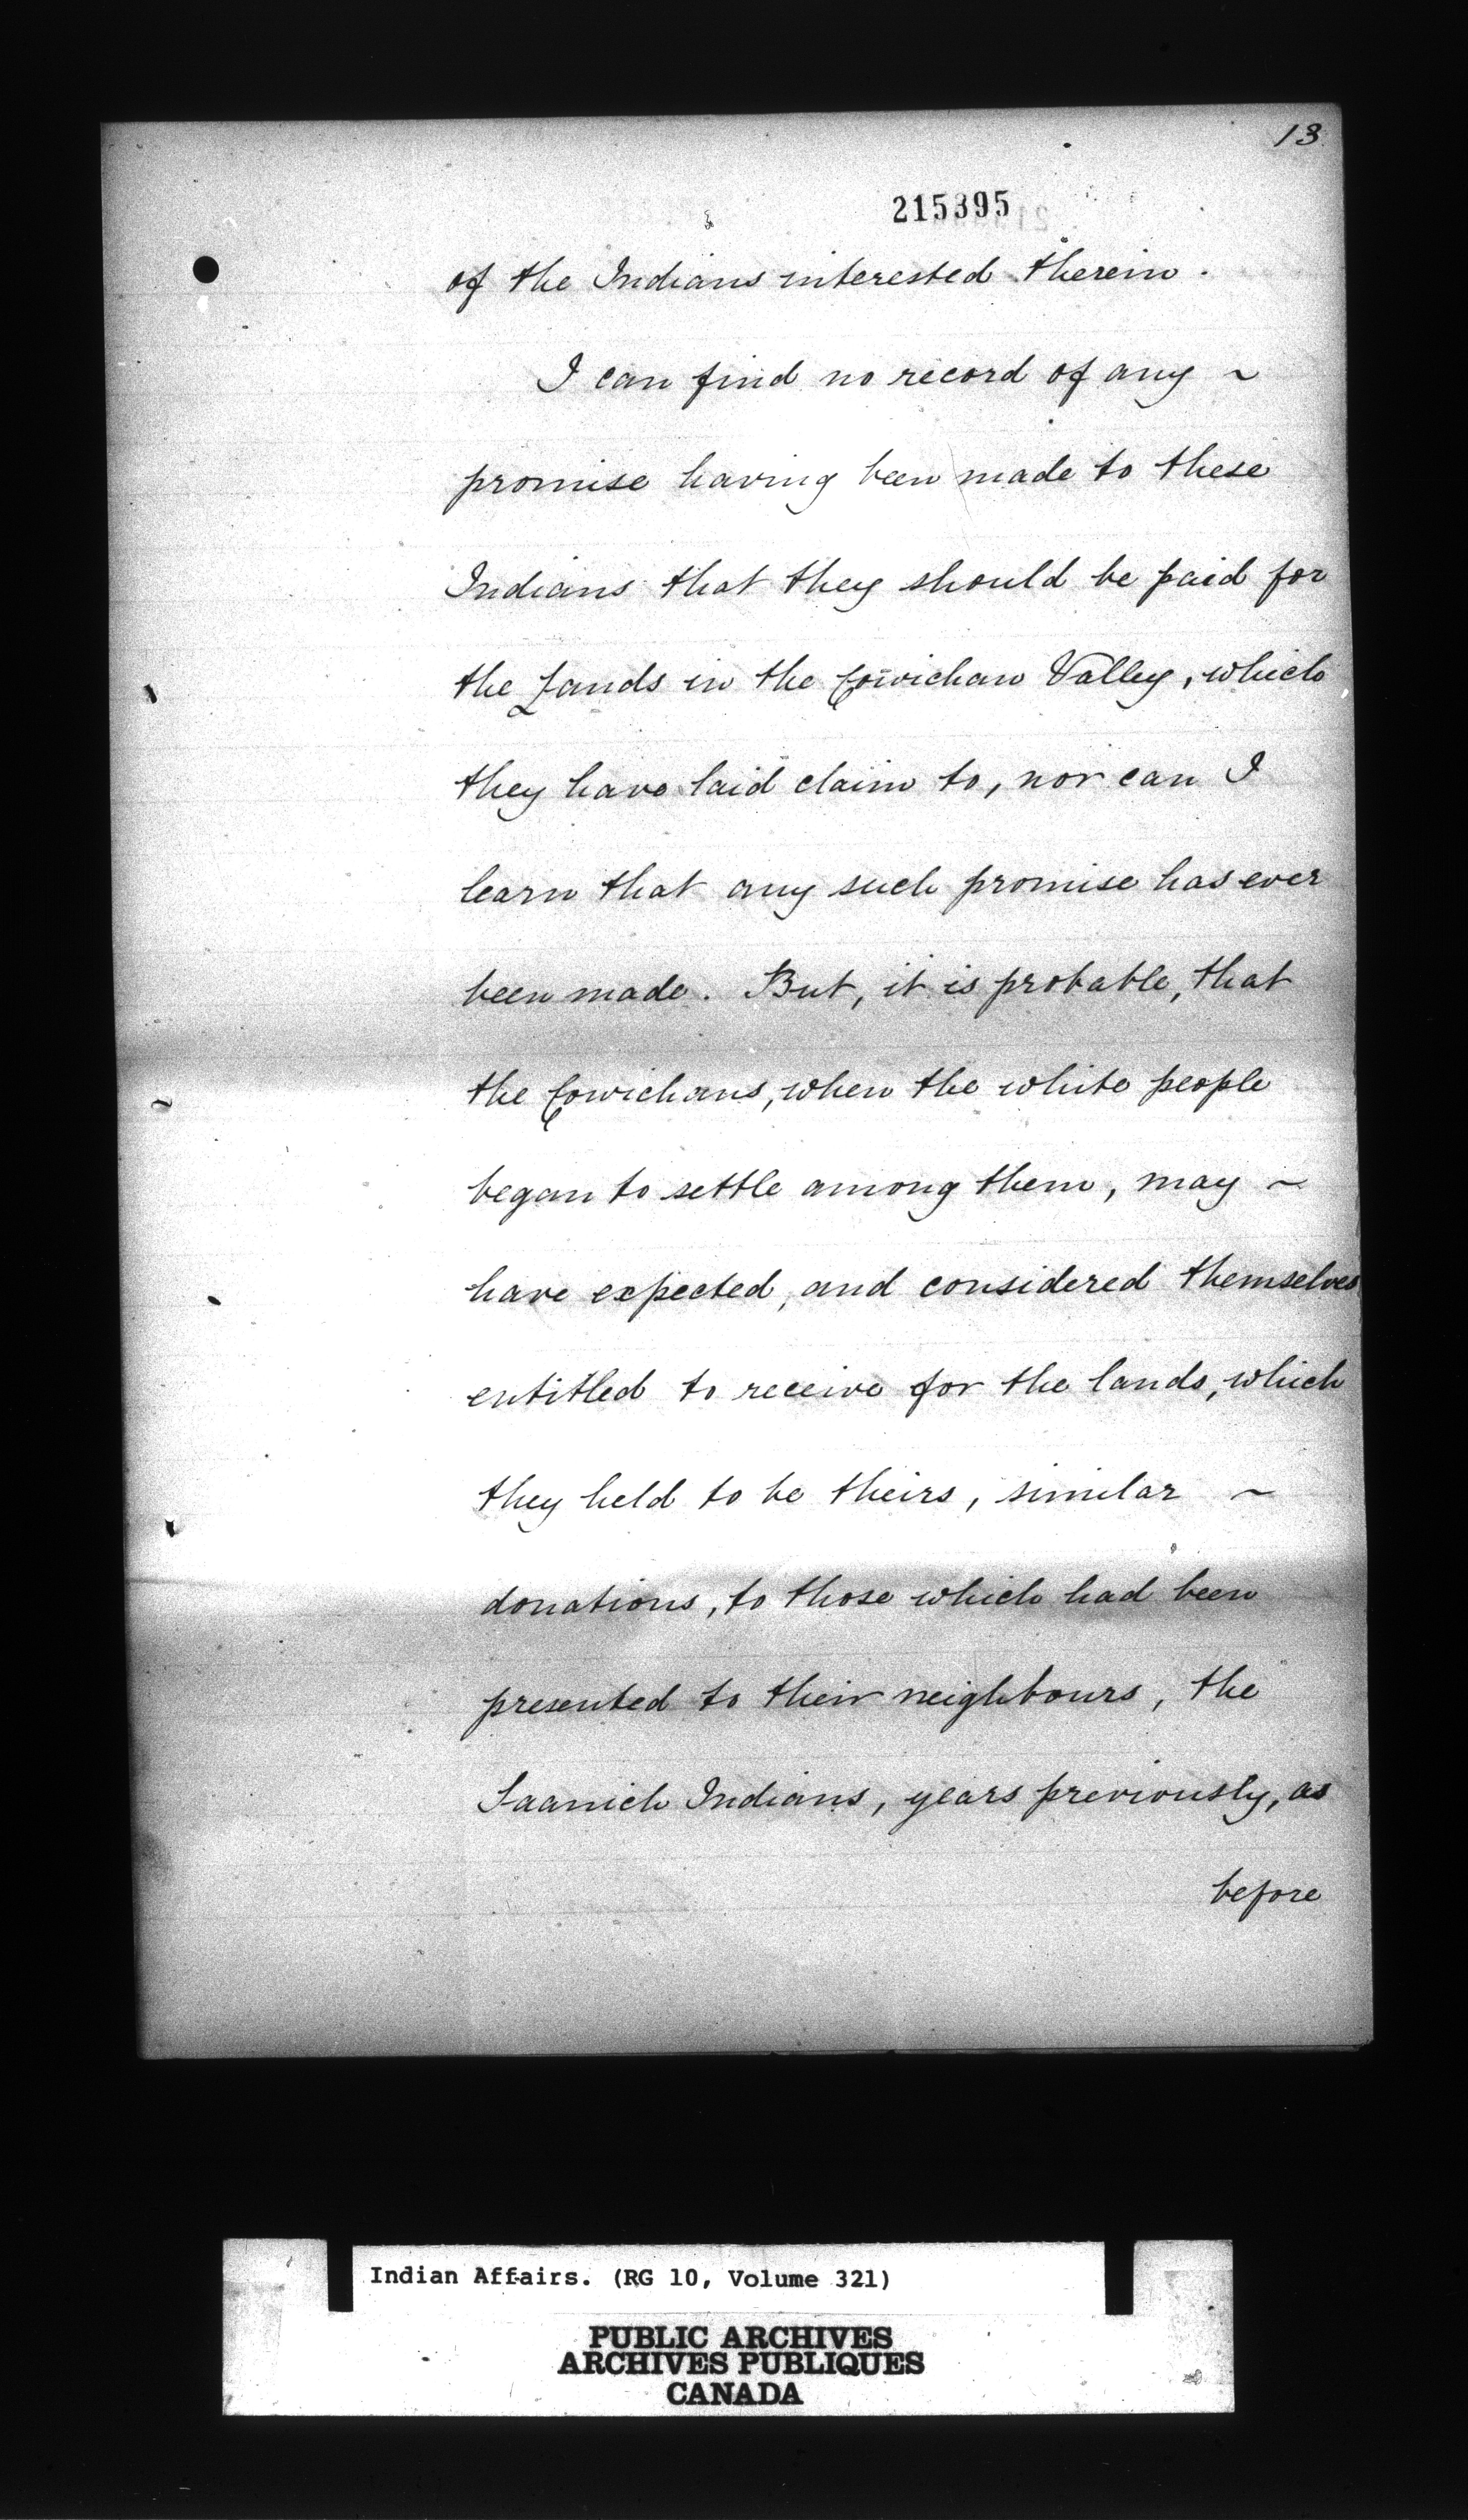 13
215395
of the Indians interested therein.
I can find no record of any ~
promise having been made to these
Indians that they should be paid for
the Lands in the Cowichan Valley, which
they have laid claim to, nor can I
learn that any such promise has ever
been made. But, it is probable, that
the Cowichans, when the white people
began to settle among them, may ~
have expected, and considered themselves
entitled to receive for the lands, which
they held to be theirs, similar ~
donations, to those which had been
presented to their neighbours, the
Saanich Indians, years previously, as
before
Indian Affairs. (RG 10, Volume 321)
PUBLIC ARCHIVES
ARCHIVES PUBLIQUES
CANADA